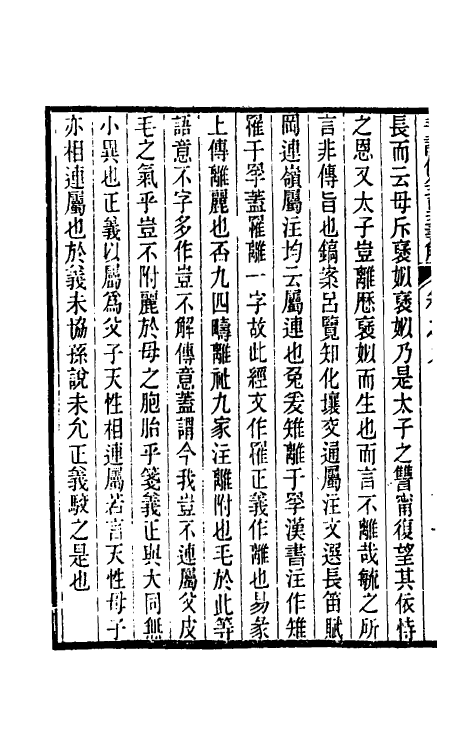 長而云母斥褒姒褒姒乃是太子之讐甯復望其依恃
之恩又太子豈離歷褒姒而生也而言不離哉毓之所
言非傳旨也鎬案呂覽知化壤交通屬注文選長笛賦
岡連嶺屬注均云屬連也兔爰雉離于罦漢書注作雉
罹于罦蓋罹離一字故此經文作罹正義作離也易彖
上傳離麗也否九四疇離祉九家注離附也毛於此等
語意不字多作豈不解傳意蓋謂今我豈不連屬父皮
毛之氣乎豈不附麗於母之胞胎乎箋義正與大同無
小異也正義以屬為父子天性相連屬若言天性母子
亦相連屬也於義未協孫說未允正義駮之是也